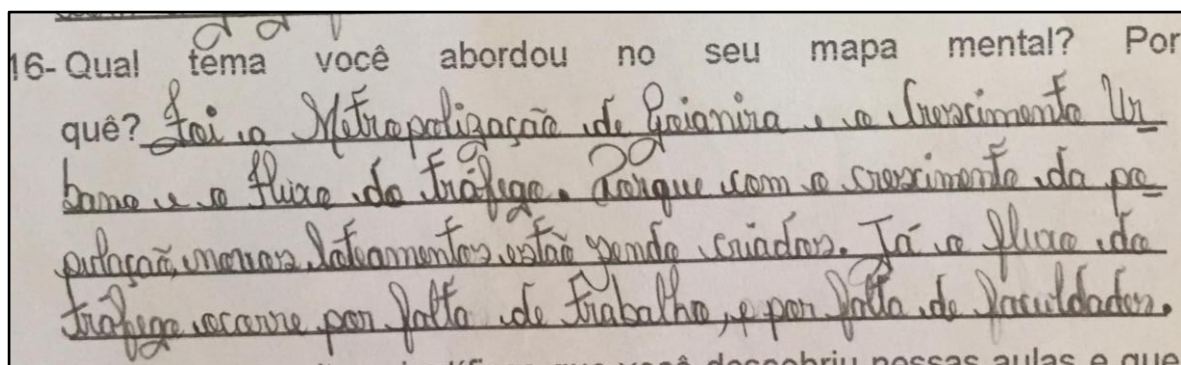 16- Qual tema você abordou no seu mapa mental? Por
quê? Foi a Metropolização de Goianira e o Crescimento Ur
bano e o fluxo do tráfego. Porque com o crescimento da po
pulação, novos loteamentos estão sendo criados. Já o fluxo do
tráfego ocorre por falta de trabalho, e por falta de faculdades.
você descobriu nossas aulas e que